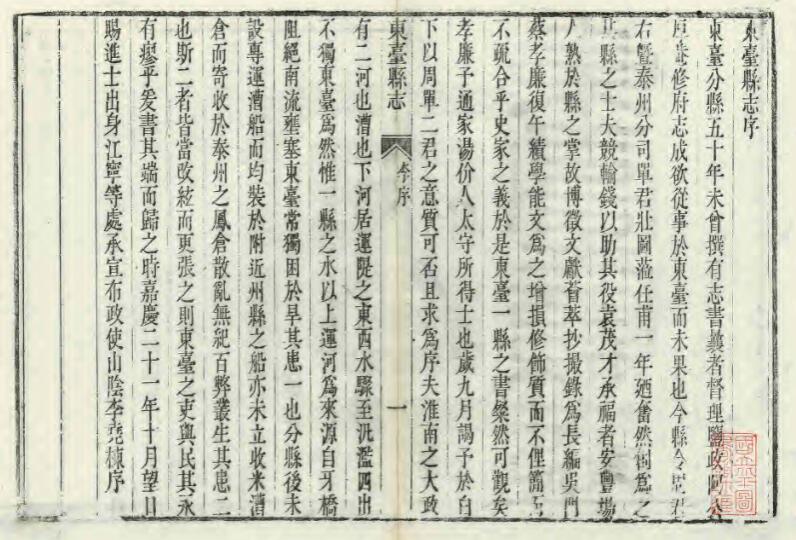 東臺縣志序
東臺分縣五十年未曾撰有志書曩者督理鹽政阿
修府志成欲從事於東臺而未果也今縣令周君
右曁泰州分司單君壯圖蒞任甫一年廼奮然剏爲之
縣之士夫競輸錢以助其役袁茂才承福者安豐場
人熟於縣之掌故博徵文獻薈萃抄撮錄爲長編吳門
蔡孝廉復午績學能文爲之增損修飾質而不俚
不蕪合乎史家之義於是東臺一縣之書粲然可觀矣
孝廉予通家湯价人太守所得士也歲九月謁予於白
下以周單二君之意質可否且求爲序夫淮南之大政
東臺縣志 序 一
有二河也漕也下河居運隄之東西水驟至汎濫四出
不獨東臺爲然惟一縣之水以上運河爲來源自牙橋
阻絕南流壅塞東臺常獨困於旱其患一也分縣後未
設專運漕船而均裝於附近州縣之船亦未立收米漕
倉而寄收於泰州之鳳倉散亂無紀百弊叢生其患二
也斯二者皆當改絃而更張之則東臺之吏與民其永
有瘳乎爰書其端而歸之時嘉慶二十一年十月望日
賜進士出身江寧等處承宣布政使山陰李堯棟序